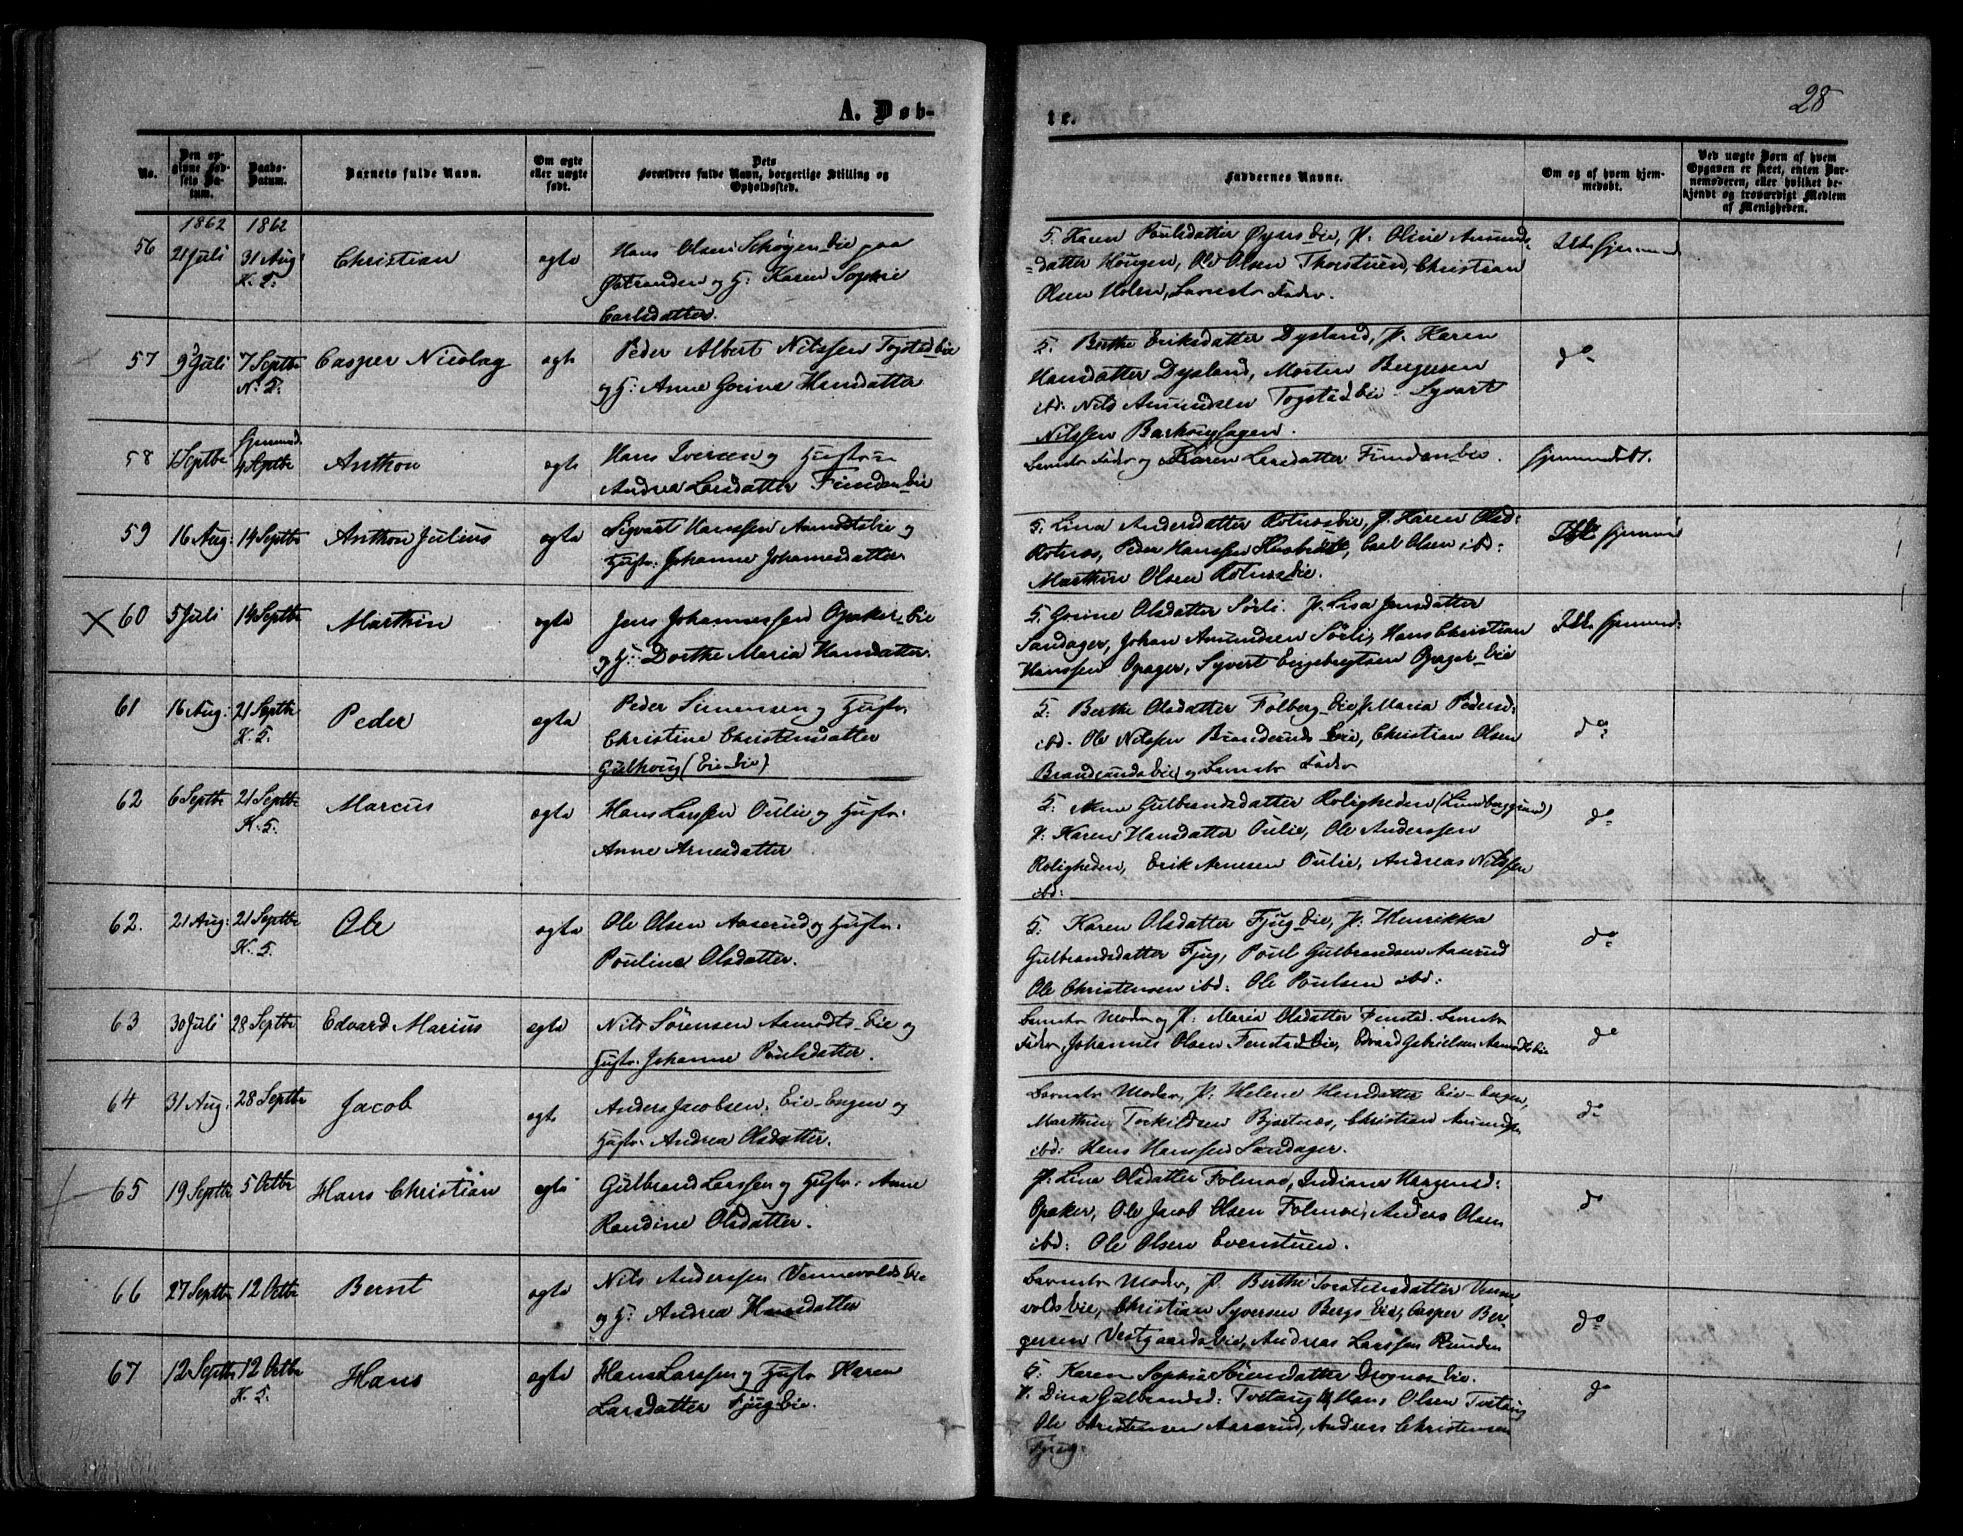 28
A. Døb-
te.
No.
Den opgivne Fødsels Datum.
Daabs-Datum.
Barnets fulde Navn.
Om ægte eller uægte født.
Dets Forældres fulde Navn, borgerlige Stilling og Opholdssted.
Faddernes Navne.
Om og af hvem hjemmedøbt.
Ved uægte Børn af hvem Opgaven er skeet, enten Barnemoderen, eller hvilket bekjendt og troværdigt Medlem af Menigheden.
1862 1862
56 21 Juli 31 Aug: Christian ægte Hans Olsen eie paa
og H: Karen Sophie
Carlsdatter.
Karen Poulsdatter eie, P. Oline Amunds-
datter Hougen, Ole Olsen Christian
Olsen Holen, Barnets Fader.
Ikke hjemmed.
57 9 Juli 7 Septbr Casper Nicolay ægte Peder Albert Nilssen Togstad eie
og H: Anne Gorine Hansdatter
Berthe Eriksdatter Dysland, P. Karen
Hansdatter Dysland, Morten Bergersen
ibd: Nils Amundsen Togstad eie Syvert
Nilssen
do
58 1 Septbr Hjemmed. 4 Septbr Anthon ægte Hans Iversen og Hustru
Andrea Larsdatter Funden eie
Barnets Fader og Karen Larsdatter Funden eie. hjemmedøbt.
59 16 Aug: 14 Septbr Anthon Julius ægte Sigvart Hanssen Aamodts eie og
Hustr: Johanne Johannesdatter
Lina Andersdatter Rotnes eie, P. Karen Olsd:
Rotnes, Peder Hanssen Carl Olsen ibd:
Marthin Olsen Rotnes eie.
Ikke hjemmed
60 5 Juli 14 Septbr Marthin ægte Jens Johannessen Opaker eie
og H: Dorthe Maria Hansdatter.
Gorine Olsdatter Sörli. P. Lisa Jensdatter
Sandager, Johan Amundsen Sörli, Hans Christian
Hanssen Opager, Syvert Engebregtsen Opager eie
Ikke hjemmed:
61 16 Aug: 21 Septbr Peder ægte Peder Simensen og Hustr.
Christine Christensdatter
Gulhoug (Eie eie)
Berthe Olsdatter Folberg eie, P. Maria Pedersd:
ibd. Ole Nilssen Branderuds eie, Christian Olsen
Branderuds eie og Barnets Fader
do
62 6 Septbr 21 Septbr Marcus ægte Hans Larssen Oulie og Hustr:
Anne Arnesdatter
Anne Gulbrandsdatter Roligheden
P: Karen Hansdatter Oulie, Ole Anderssen
Roligheden, Erik Arnesen Oulie, Andreas Nilssen
ibd:
do
62. 21 Aug: 21 Septbr Ole ægte Ole Olsen Aaserud og Hustr:
Pouline Olsdatter.
Karen Olsdatter Fjug eie, P: Henrikka
Gulbrandsdatter Fjug, Poul Gulbrandsen Aaserud
Ole Christensen ibd: Ole Poulsen ibd:
do
63 30 Juli 28 Septbr Edvard Marius ægte Nils Sörensen Aamodts eie og
Hustr. Johanne Poulsdatter.
Barnets Moder og P: Maria Olsdatter Fenstad. Barnets
Fader, Johannes Olsen Fenstad eie, Edvard Gabrielsen Aamodts eie
do
64 31 Aug: 28 Septbr Jacob ægte Anders Jacobsen, Eie-Engen og
Hustr: Andrea Olsdatter.
Barnets Moder, P: Helene Hansdatter Eie-Engen,
Marthin Torkildsen Bjertnes, Christian Amundsen
ibd: Hans Hanssen Sandager.
do
65 19 Septbr 5 Octbr Hans Christian ægte Gulbrand Larssen og Hustr: Anne
Randine Olsdatter.
P. Lina Olsdatter Folmoe, Indiane Haagensd:
Opaker, Ole Jacob Olsen Folmoe, Anders Olsen
ibd: Ole Olsen Evenstuen.
do
66 27 Septbr 12 Octbr Bernt ægte Nils Anderssen Vennevolds eie
og H: Andrea Hansdatter
Barnets Moder, P. Berthe Torstensdatter Venne
volds eie, Christian Syversen Bergs eie, Casper Ber-
gersen Vestgaards eie, Andreas Larssen Runden
do
67 12 Septbr 12 Octbr Hans ægte Hans Larssen og Hustr Karen
Larsdatter Fjug eie.
Karen Sophie Sörensdatter Drognes eie.
P. Dina Gulbrandsd: Tvetang, Hans Olsen Tvetang
Ole Christensen Aaserud, Anders Christensen
Fjug.
do